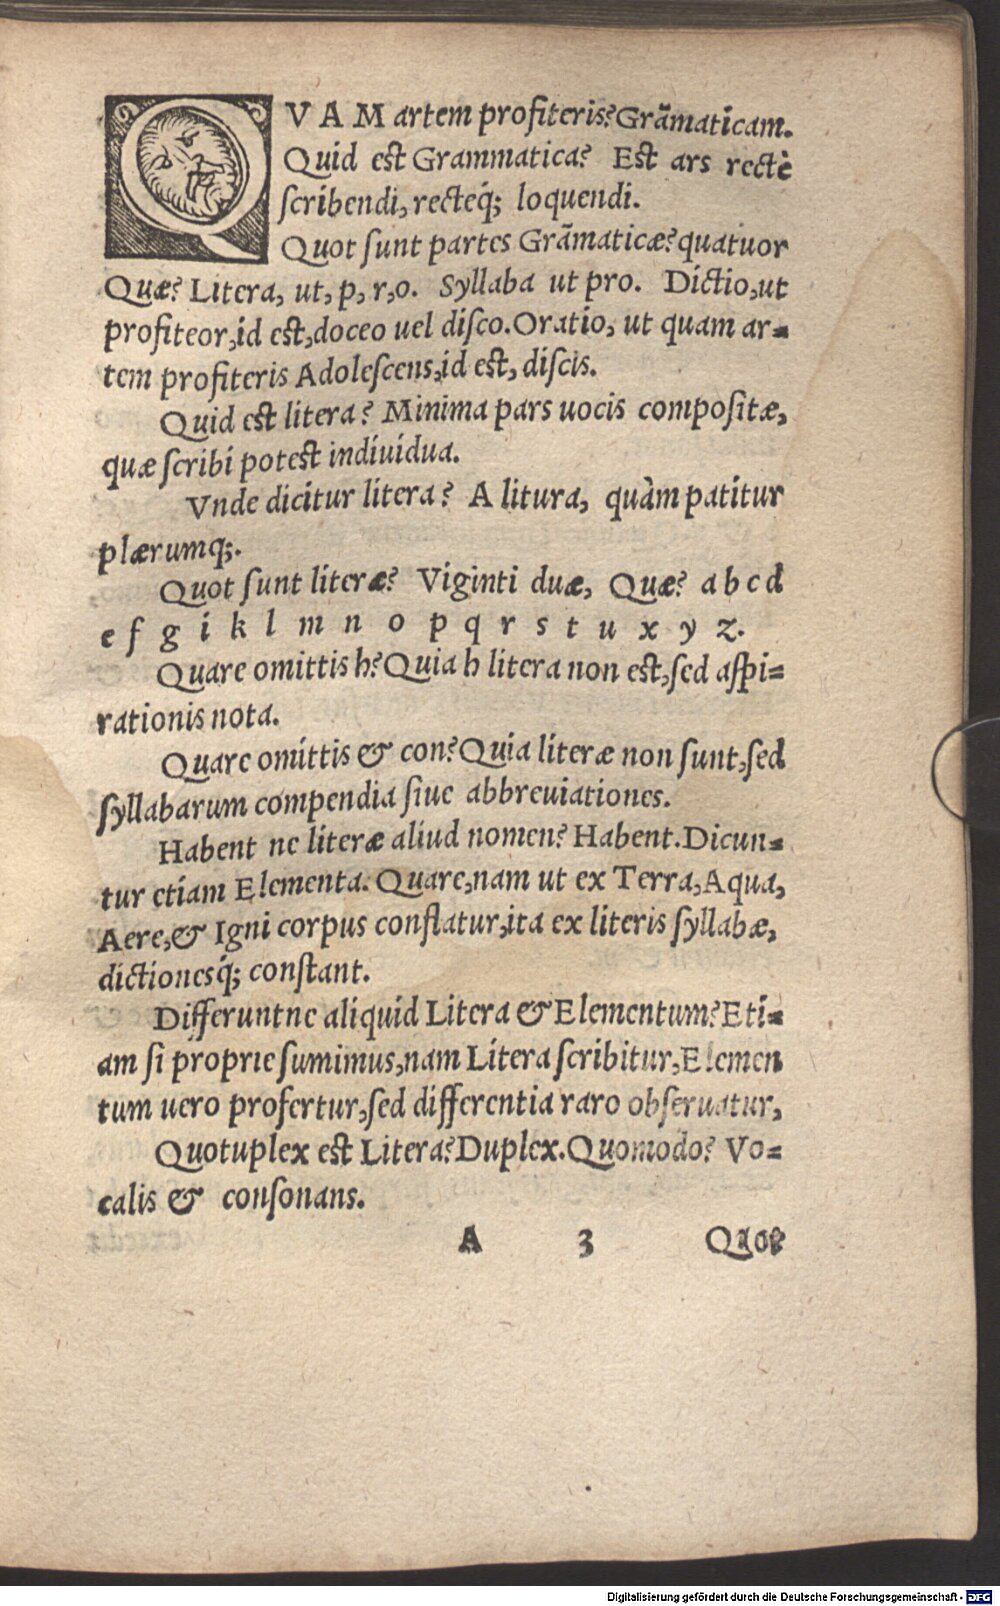 QVAM artem profiteris? Grãmaticam.
Quid est Grammatica? Est ars rectè
scribendi, recteq́; loquendi.
Quot sunt partes Grãmaticæ? quatuor
Quæ? Litera, ut, p, r, o. Syllaba ut pro. Dictio, ut
profiteor, id est, doceo uel disco. Oratio, ut quam ar-
tem profiteris Adolescens, id est, discis.
Quid est litera? Minima pars uocis compositæ,
quæ scribi potest indiuidua.
Vnde dicitur litera? A litura, quàm patitur
plærumq;.
Quot sunt literæ? Viginti duæ, Quæ? a b c d
e f g i k l m n o p q r s t u x y z.
Quare omittis h? Quia h litera non est, sed aspi-
rationis nota.
Quare omittis & con? Quia literæ non sunt, sed
syllabarum compendia siue abbreuiationes.
Habent ne literæ aliud nomen? Habent. Dicun-
tur etiam Elementa. Quare, nam ut ex Terra, Aqua,
Aere, & Igni corpus conflatur, ita ex literis syllabæ,
dictionesq́; constant.
Differuntne aliquid Litera & Elementum? Eti-
am si proprie sumimus, nam Litera scribitur, Elemen
tum uero profertur, sed differentia raro obseruatur,
Quotuplex est Litera? Duplex. Quomodo? Vo-
calis & consonans.
A 3
Digitalisierung gefördert durch die Deutsche Forschungsgemeinschaft - DFG